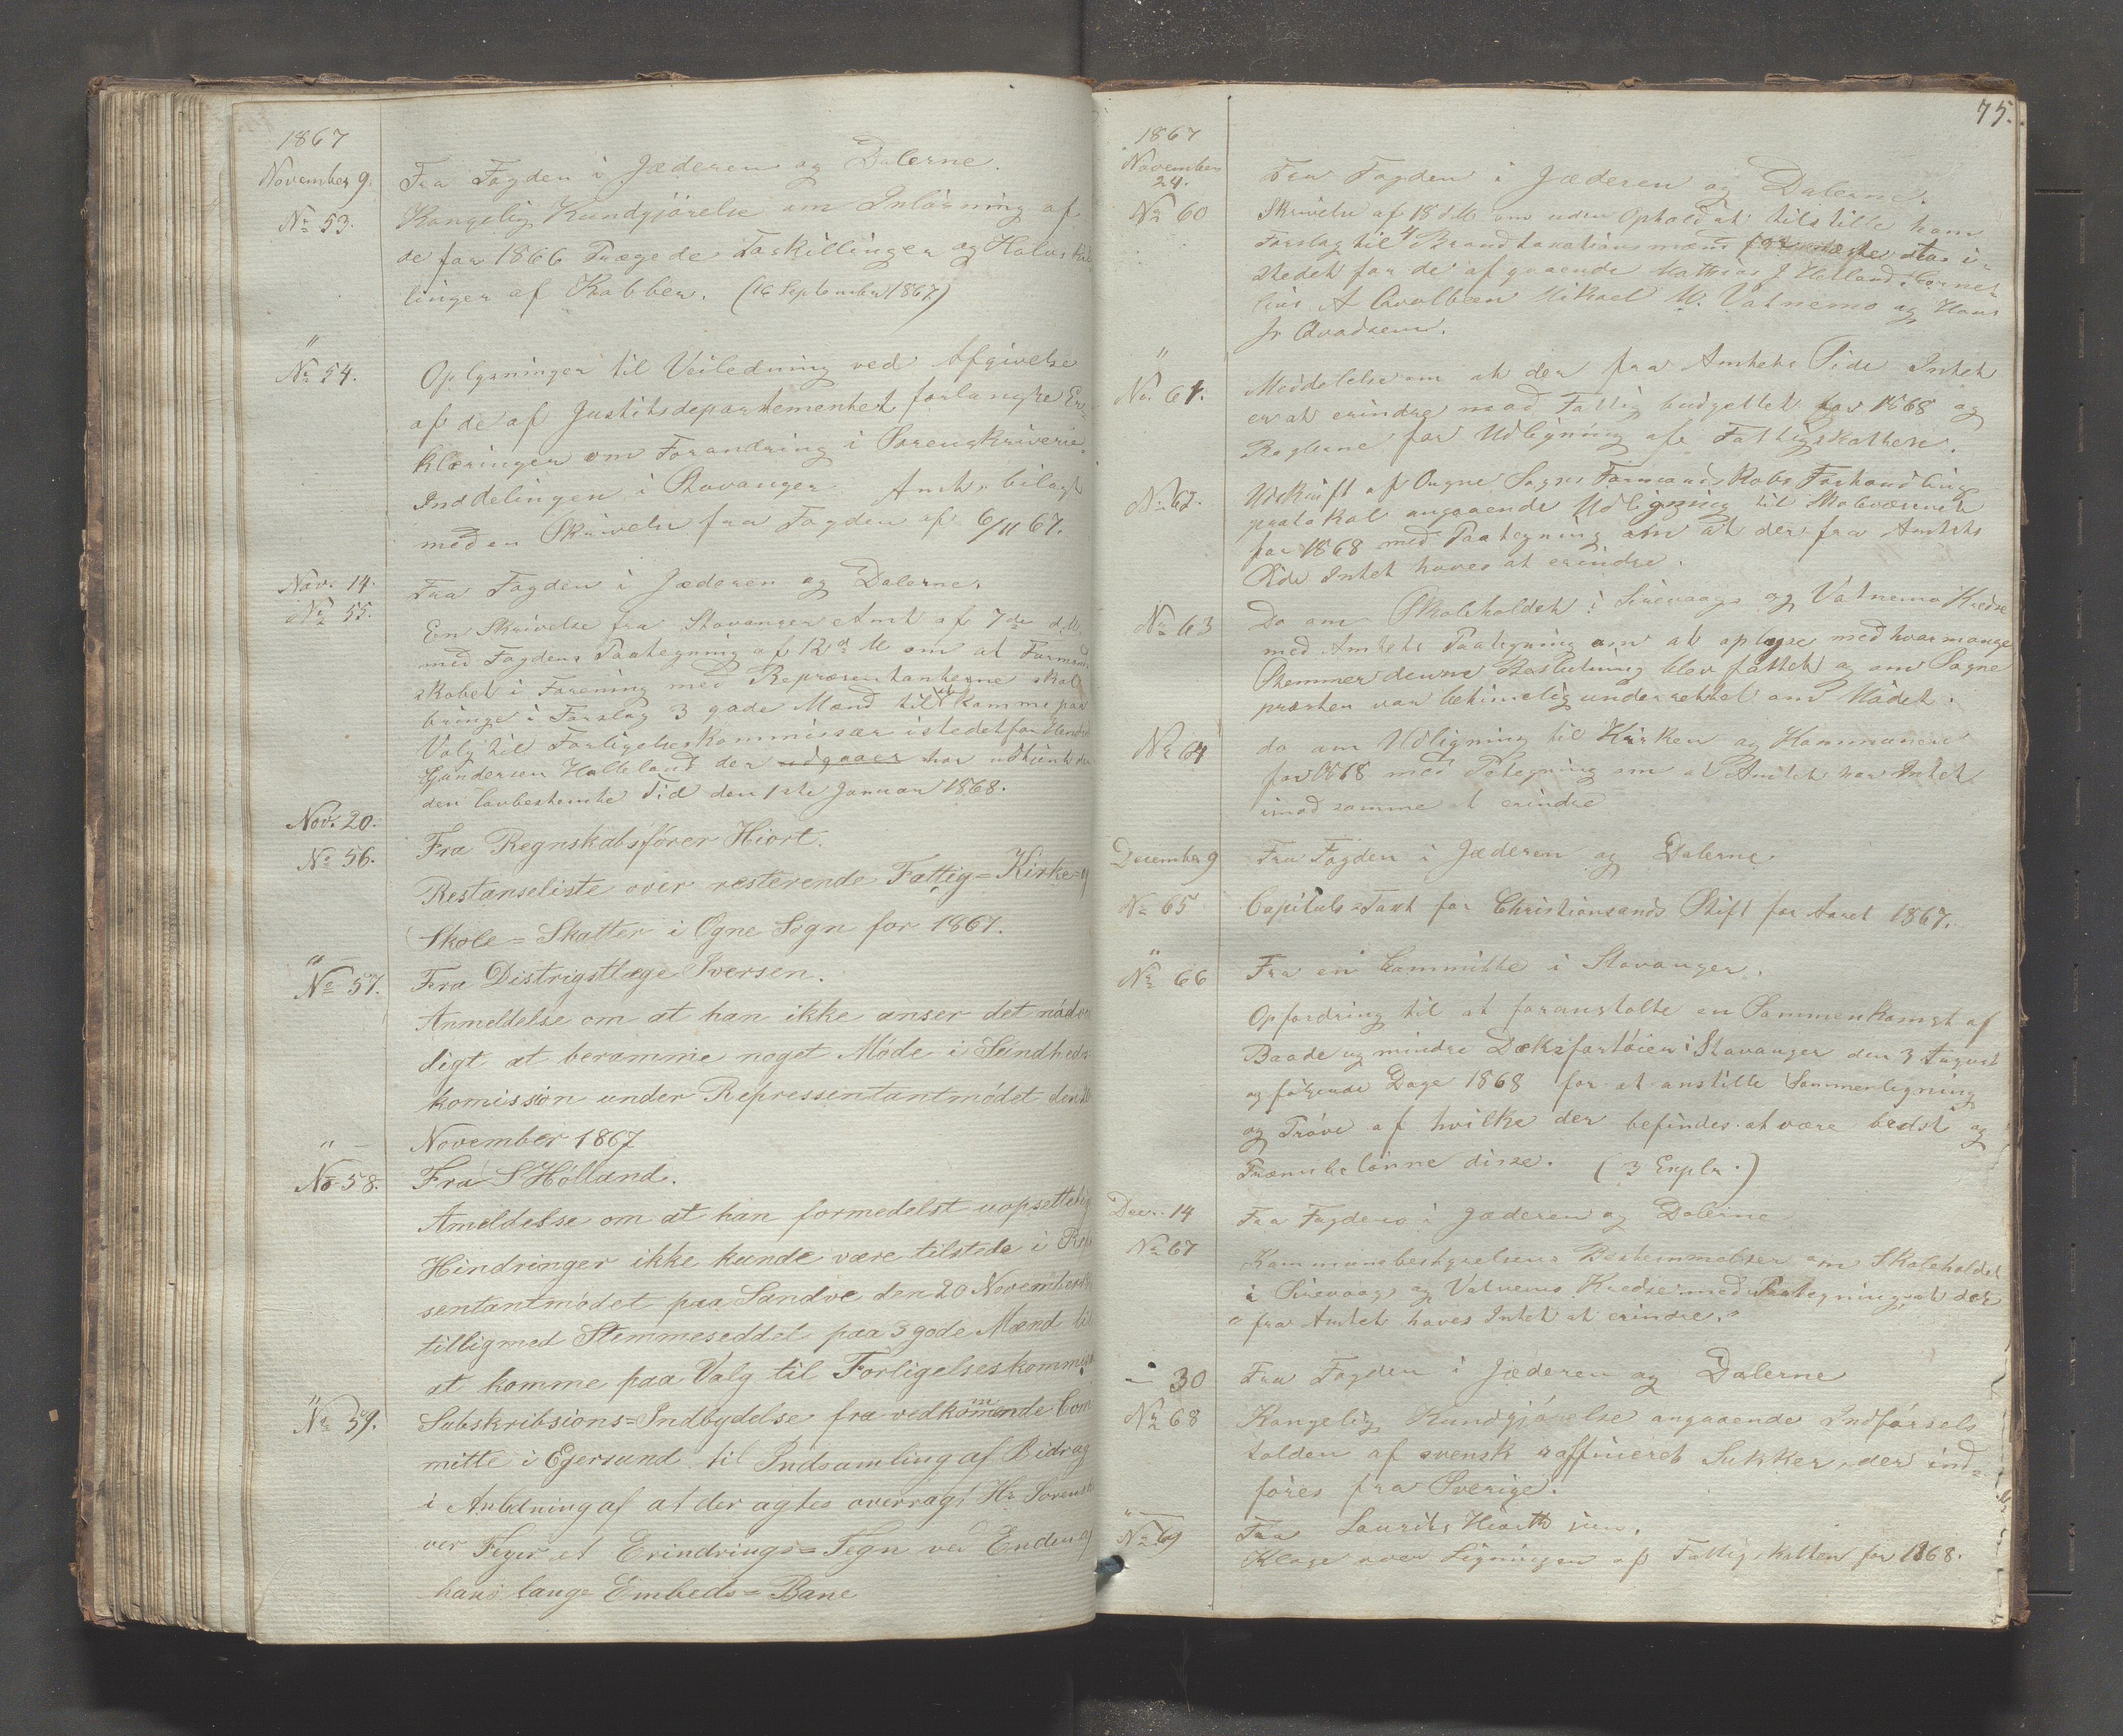 1867
November 9.
Fra Fogden i Jæderen og Dalerne.
No 53.
Kongelig Kundgjörelse om Inlösning af
de for 1866 Prægede Toskillinger og Halvskil
linger af Kobber. (16 September 1867)
"
No 54.
Oplysninger til Veiledning ved Afgivelse
af de af Justitsdepartementet forlangte Er
klæringer om Forandring i Sorenskriverie
Inddelingen i Stavanger Amt, bilagt
med en Skrivelse fra Fogden af 6/11 67.
Nov. 14.
Fra Fogden i Jæderen og Dalerne.
No 55.
En Skrivelse fra Stavanger Amt af 7de d. M.
med Fogdens Paategning af 12 d. M om at Formand
skabet i Forening med Repræsentanterne skal
bringe i Forslag 3 gode Mænd til at komme paa
Valg til Forligelseskommissær istedetfor
Gundersen Halleland der udgaaer har udtjent
den lovbestemte Tid den 1ste Januar 1868.
Nov. 20.
Fra Regnskabsförer Hiort.
No 56.
Restanseliste over resterende Fattig=Kirke=og
Skole=Skatter i Ogne Sogn for 1867.
"
Fra Distrigtlæge Iversen.
No 57.
Anmeldelse om at han ikke anser det nödven
digt at beramme noget Möde i Sundheds
komission under Repressentantmödet den
November 1867
"
No 58.
Fra S Hölland.
Ameldelse om at han formedelst uopsettelig
Hindringer ikke kunde være tilstede i Repr
sentantmödet paa Sandve den 20 November
tilligmed Stemmeseddel paa 3 gode Mænd til
at komme paa Valg til Forligelseskommis
"
No 59.
Subskribsions=Indbydelse fra vedkommende Com
mitte i Egersund til Indsamling af Bidrag
i Anledning af at der agtes overragt Hr Sorenskri
ver Feyer et Erindrings=Tegn ved Enden af
hans lange Embeds=Bane
75.
1867
November
24.
Fra Fogden i Jæderen og Dalerne.
No 60
Skrivelse af 18 d M om uden Ophold at tilstille ham
Forslag til 4 Brandtaxationsmænd i
stedet for de afgaaende Mathias J Helland, Corne
lius A Qvalbein Mikael M. Vatnemo og Hans
"
No 61.
Meddelelse om at der fra Amtets Side Intet
er at erindre mod Fattigbudgettet for 1868 og
Reglerne for Udligning af Fattigskatten.
No 62.
Udskrift af Ougne Sogns Formandskabs Forhandlings
protokol angaaende Udligning til Skolevæsenet
for 1868 med Paategning om at der fra Amtets
Side Intet haves at erindre.
No 63
Do om Skoleholdet i Sirevaags og Vatnemo Kredse
med Amtets Paategning om at oplyse med hvor mange
Stemmer denne Beslutning blev fattet og om Sogne
præsten var betimelig underrettet om Mödet.
No 64
do om Udligning til Kirken og Kommunen
for 1868 med Potegning om at Amtet har Intet
imod samme at erindre
December 9
Fra Fogden i Jæderen og Dalerne.
No 65
Capituls=Taxt for Christiansands Stift for Aaret 1867.
"
No 66
Fra en Committe i Stavanger.
Opfordring til at foranstalte en Sammenkomst af
Baade og mindre Dæksfartöier i Stavanger den 3 August
og fölgende Dage 1868 for at anstille Sammenligning
og Pröve af hvilke der befindes at være bedst og
Præmiebelönne disse. (3 Explr.)
Decr. 14
Fra Fogden i Jæderen og Dalerne
No 67
Kommunebestyrelsens Bestemmelser om Skoleholdet
i Sirevaag og Vatnemo Kredse med Paategning, at der
"fra Amtet haves Intet at erindre."
— 30
Fra Fogden i Jæderen og Dalerne
No 68
Kongelig Kundgjörelse angaaende Indförsels
tolden af svensk raffineret Sukker, der ind=
föres fra Sverige.
"
No 69
Fra Laurits Hiorth jun.
Klage over Ligningen af Fattigskatten for 1868.